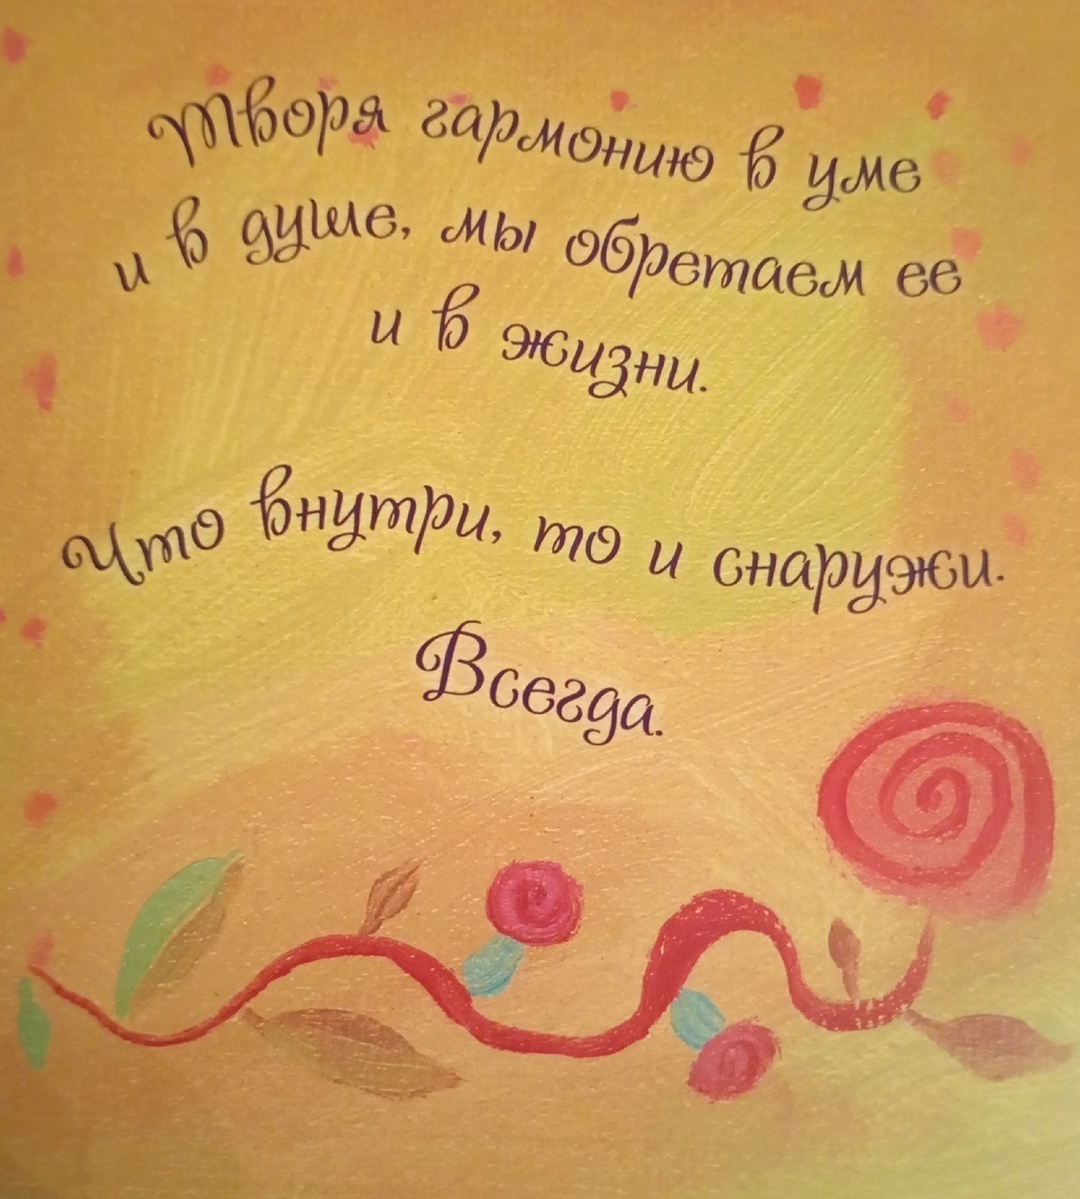 Творя гармонию в уме
и в душе, мы обретаем ее
и в жизни.
Что внутри, то и снаружи.
Всегда.